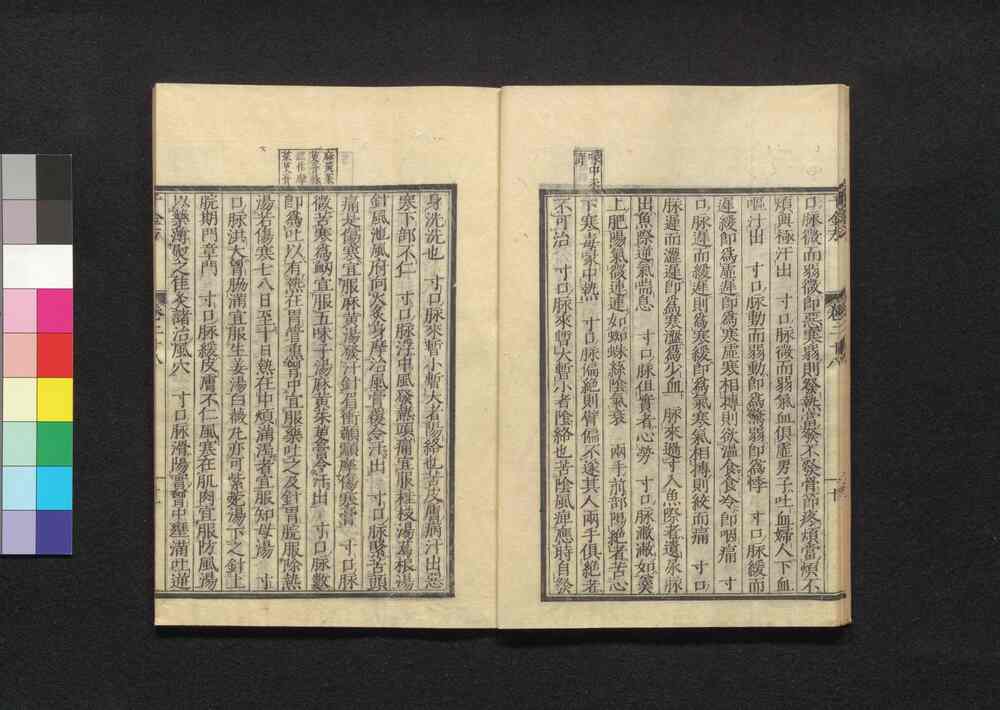 口脉微而弱微即惡寒弱則發熱當發不發骨節疼煩當煩不
煩與極汗出　寸口脉微而弱氣血俱虛男子吐血婦人下血
嘔汗出　寸口脉動而弱動即為驚弱即為悸　寸口脉緩而
遲緩即為虛遲即為寒虛寒相搏則欲溫食食冷即咽痛　寸
口脉遲而緩遲則為寒緩即為氣寒氣相搏則絞而痛　寸口
脉遲而澀遲即為寒澀為少血　脉來過寸入魚際者遺尿脉
出魚際逆氣喘息　寸口脉但實者心勞　寸口脉潎潎如羹
上肥陽氣微連連如蜘蛛絲陰氣衰　兩手前部陽絕者苦心
下寒毒喙中熱　寸口脉偏絕則臂偏不遂其人兩手俱絕者
不可治　寸口脉來暫大暫小者陰絡也苦陰風痺應時自發
身洗洗也　寸口脉來暫小暫大者陽絡也苦皮膚病汗出惡
寒下部不仁　寸口脉浮中風發熱頭痛宜服桂枝湯葛根湯
針風池風府向火灸身摩治風膏覆令汗出　寸口脉緊苦頭
痛是傷寒宜服麻黃湯發汗針眉衝顳顬摩傷寒膏　寸口脉
微苦寒為衂宜服五味子湯麻黃茱萸膏令汗出　寸口脉數
即為吐以有熱在胃管熏胸中宜服藥吐之及針胃脘服除熱
湯若傷寒七八日至十日熱在中煩滿渴者宜服知母湯　寸
口脉洪大胷脇滿宜服生姜湯白薇丸亦可紫菀湯下之針上
脘期門章門　寸口脉緩皮膚不仁風寒在肌肉宜服防風湯
以藥薄熨之佳灸諸治風穴　寸口脉滑陽實胷中壅滿吐逆